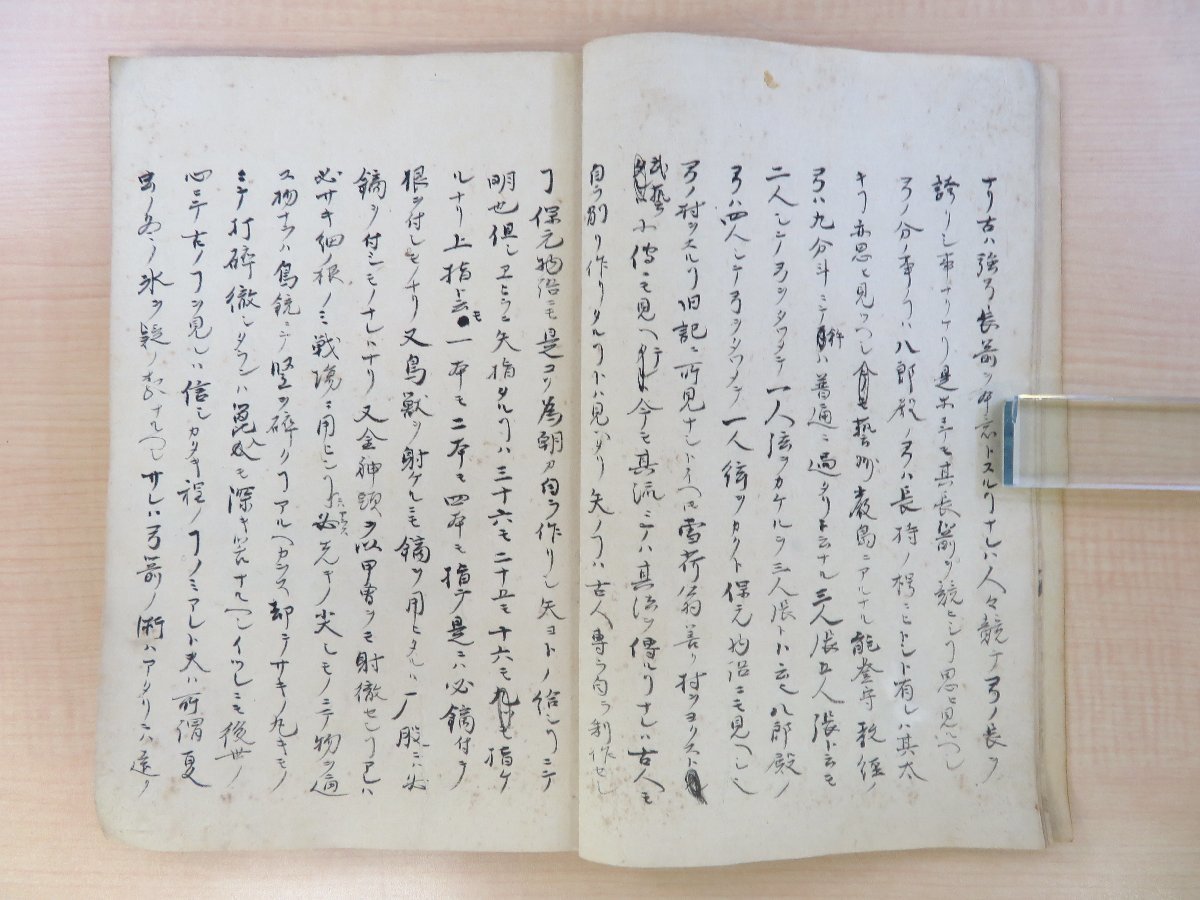 ナリ古ハ強弓長箭ヲ専トスルヿナレハ人々競テ弓ノ長ヲ
誇リシ事ナリケリ是ニテモ其長箭ヲ競ヒシヿ思ヒ見ヘシ
弓ノ分ノ事ハ八郎殿ノ弓ハ長持ノ枴ニヒトシト有レハ其太
キヿ亦思ヒ見ツヘシ藝州厳島ニアルナル能登守教経ノ
弓ハ九分斗ニテ普通ニ過タリト云ナル三人張五人張ト云モ
二人シテ弓ヲタワメテ一人弦ヲカケルヲ三人張ト云也八郎殿ノ
弓ハ四人シテ弓ヲタワメテ一人弦ヲカクト保元物語ニモ見ヘシモ
弓ノ村ヲスルヿ旧記ニ所見ナシトイヘ𪜈雪荷翁善ク村ヲヨクスト
武藝小傳ニモ見ヘ今モ其流ニテハ其法ヲ傳ルヿナレハ古人モ
自ラ削リ作リタルヿトハ見ヘタリ矢ノヿハ古人専ラ自ラ制作セシ
ヿ保元物語ニモ是コソ為朝カ自ラ作リシ矢ヨトノ給シヿニテ
明也但シヱヒラニ矢指タルヿハ三十六モ二十五モ十六モ指ケ
ルナリ上指ト云モ一本モ二本モ四本モ指テ是ニハ必鏑付ヲ
根ヲ付シモノナリ又鳥獣ヲ射ケルニモ鏑ヲ用ヒタルハ
鏑ヲ付シモノナレトナリ又金神頭ヲ以甲冑ヲモ射徹セシヿアレハ
必サキ細ノ根ノミ戦場ニ用ヒシニ先キノ尖シモノニテ物ヲ通
ス物ナラハ鳥鏡ニテ堅ヲ碎クヿアルヘカラス却テサキノ丸キモノ
ニテ打碎徹シタランハ深キ差ナルヘシイツレニモ後世ノ
心ニテ古ノヿヲ見レハ信シカタキ程ノヿノミアレト夫ハ所謂夏
虫ノ氷ヲ疑ノ類ナルヘシサレハ弓箭ノ術ハアタリニハ遠ク